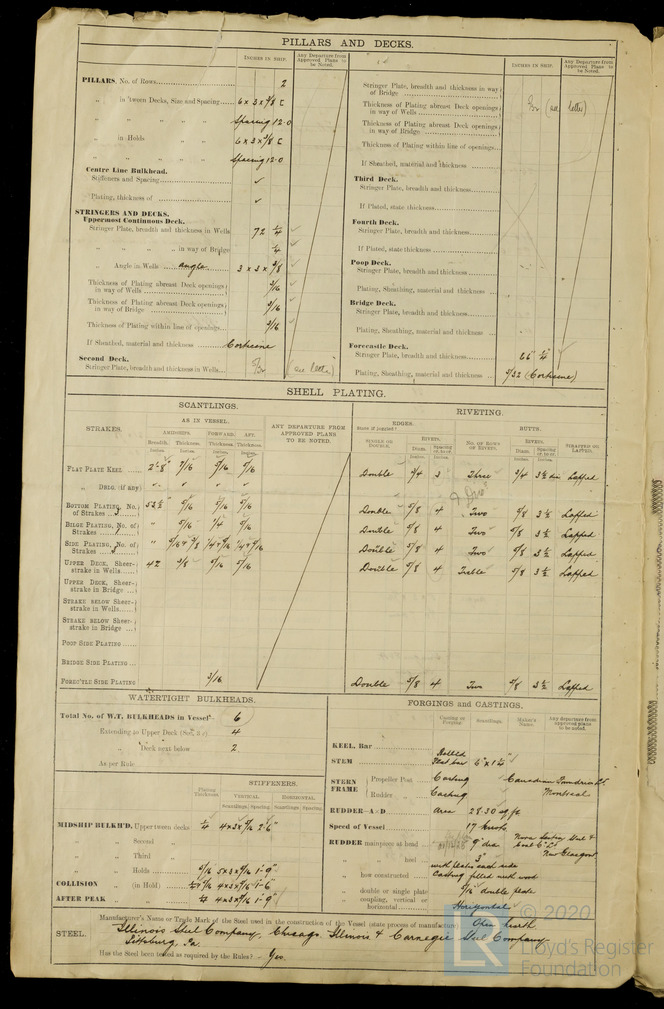 PILLARS AND DECKS.
INCHES IN SHIP.
Any Departure from Approved Plans to be Noted.
PILLARS, No. of Rows 2
„ in 'tween Decks, Size and Spacing 6 x 3 x 3/8 C
„ „ „ „ Spacing 12·0
„ in Holds „ „ 6 x 3 x 3/8 C
„ „ „ „ Spacing 12·0
Centre Line Bulkhead.
Stiffeners and Spacing ✓
Plating, thickness of ✓
STRINGERS AND DECKS.
Uppermost Continuous Deck.
Stringer Plate, breadth and thickness in Wells 72 1/4
„ „ „ „ in way of Bridge 1/4
„ Angle in Wells angle 3 x 3 x 3/8
Thickness of Plating abreast Deck openings in way of Wells 3/16
Thickness of Plating abreast Deck openings in way of Bridge 3/16
Thickness of Plating within line of openings 3/16
If Sheathed, material and thickness Corticine
Second Deck.
Stringer Plate, breadth and thickness in Wells (see letter)
INCHES IN SHIP.
Any Departure from Approved Plans to be Noted.
Stringer Plate, breadth and thickness in way of Bridge
Thickness of Plating abreast Deck openings in way of Wells (see letter)
Thickness of Plating abreast Deck openings in way of Bridge
Thickness of Plating within line of openings
If Sheathed, material and thickness
Third Deck.
Stringer Plate, breadth and thickness
If Plated, state thickness
Fourth Deck.
Stringer Plate, breadth and thickness
If Plated, state thickness
Poop Deck.
Stringer Plate, breadth and thickness
Plating, Sheathing, material and thickness
Bridge Deck.
Stringer Plate, breadth and thickness
Plating, Sheathing, material and thickness
Forecastle Deck.
Stringer Plate, breadth and thickness 66" 1/4"
Plating, Sheathing, material and thickness 5/32 (Corticine)
SHELL PLATING.
SCANTLINGS.
RIVETING.
STRAKES.
AS IN VESSEL.
AMIDSHIPS. FORWARD. AFT.
Breadth. Thickness. Thickness. Thickness.
Inches. Inches. Inches. Inches.
ANY DEPARTURE FROM APPROVED PLANS TO BE NOTED.
EDGES.
State if joggled?
SINGLE OR DOUBLE.
RIVETS.
Diam. Spacing cr. to cr.
BUTTS.
NO. OF ROWS OF RIVETS.
RIVETS.
Diam. Spacing cr. to cr.
STRAPPED OR LAPPED.
FLAT PLATE KEEL 2'-8" 7/16 5/16 5/16 Double 3/4 3 Three 3/4 3 1/2 dia Lapped
„ DBLG. (if any) „ „ „ „
BOTTOM PLATING, No. of Strakes 3 52 1/2" 5/16 5/16 5/16 Double 5/8 4 Two 5/8 3 1/2 Lapped
BILGE PLATING, No. of Strakes 1 „ 5/16 1/4 5/16 Double 5/8 4 Two 5/8 3 1/2 Lapped
SIDE PLATING, No. of Strakes 3 „ 5/16 & 3/8 1/4 & 5/16 1/4 & 5/16 Double 5/8 4 Two 5/8 3 1/2 Lapped
UPPER DECK, Sheerstrake in Wells 42 3/8 5/16 5/16 Double 5/8 4 Treble 5/8 3 1/2 Lapped
UPPER DECK, Sheerstrake in Bridge
STRAKE BELOW Sheerstrake in Wells
STRAKE BELOW Sheerstrake in Bridge
POOP SIDE PLATING
BRIDGE SIDE PLATING
FORE'C'TLE SIDE PLATING 3/16 Double 5/8 4 Two 5/8 3 1/2 Lapped
WATERTIGHT BULKHEADS.
Total No. of W.T. BULKHEADS in Vessel 6
Extending to Upper Deck 4
„ Deck next below 2
As per Rule
Plating Thickness
STIFFENERS.
VERTICAL HORIZONTAL
Scantlings. Spacing. Scantlings. Spacing
MIDSHIP BULKH'D, Upper tween decks 1/4 4x3x5/16 2'-6"
„ Second „
„ Third „
„ Holds 5/16 5x3x5/16 1'-9"
COLLISION „ (in Hold) 4x3x5/16 1'-6"
AFTER PEAK „ „ 4x3x5/16 1'-9"
FORGINGS and CASTINGS.
Casting or Forging
Scantlings.
Maker's Name
Any departure from approved plans to be noted.
KEEL, Bar
STEM Rolled Flat bar 6" x 1 1/2"
STERN FRAME
Propeller Post Casting Canadian Foundries Ld.
Rudder „ Casting Montreal
RUDDER—A×D Area 28·30 sq ft
Speed of Vessel 17 knots
RUDDER mainpiece at head 9" dia Nova Scotia Steel & Coal Co Ld New Glasgow
„ „ heel 3"
„ how constructed with plates each side Casting filled with wood
„ double or single plate 5/16 double plate
„ coupling, vertical or horizontal Horizontal
STEEL.
Manufacturer's Name or Trade Mark of the Steel used in the construction of the Vessel (state process of manufacture) Open hearth
Illinois Steel Company, Chicago, Illinois & Carnegie Steel Company
Pittsburg, Pa.
Has the Steel been tested as required by the Rules? Yes
© 2020
LR
Lloyd's Register
Foundation